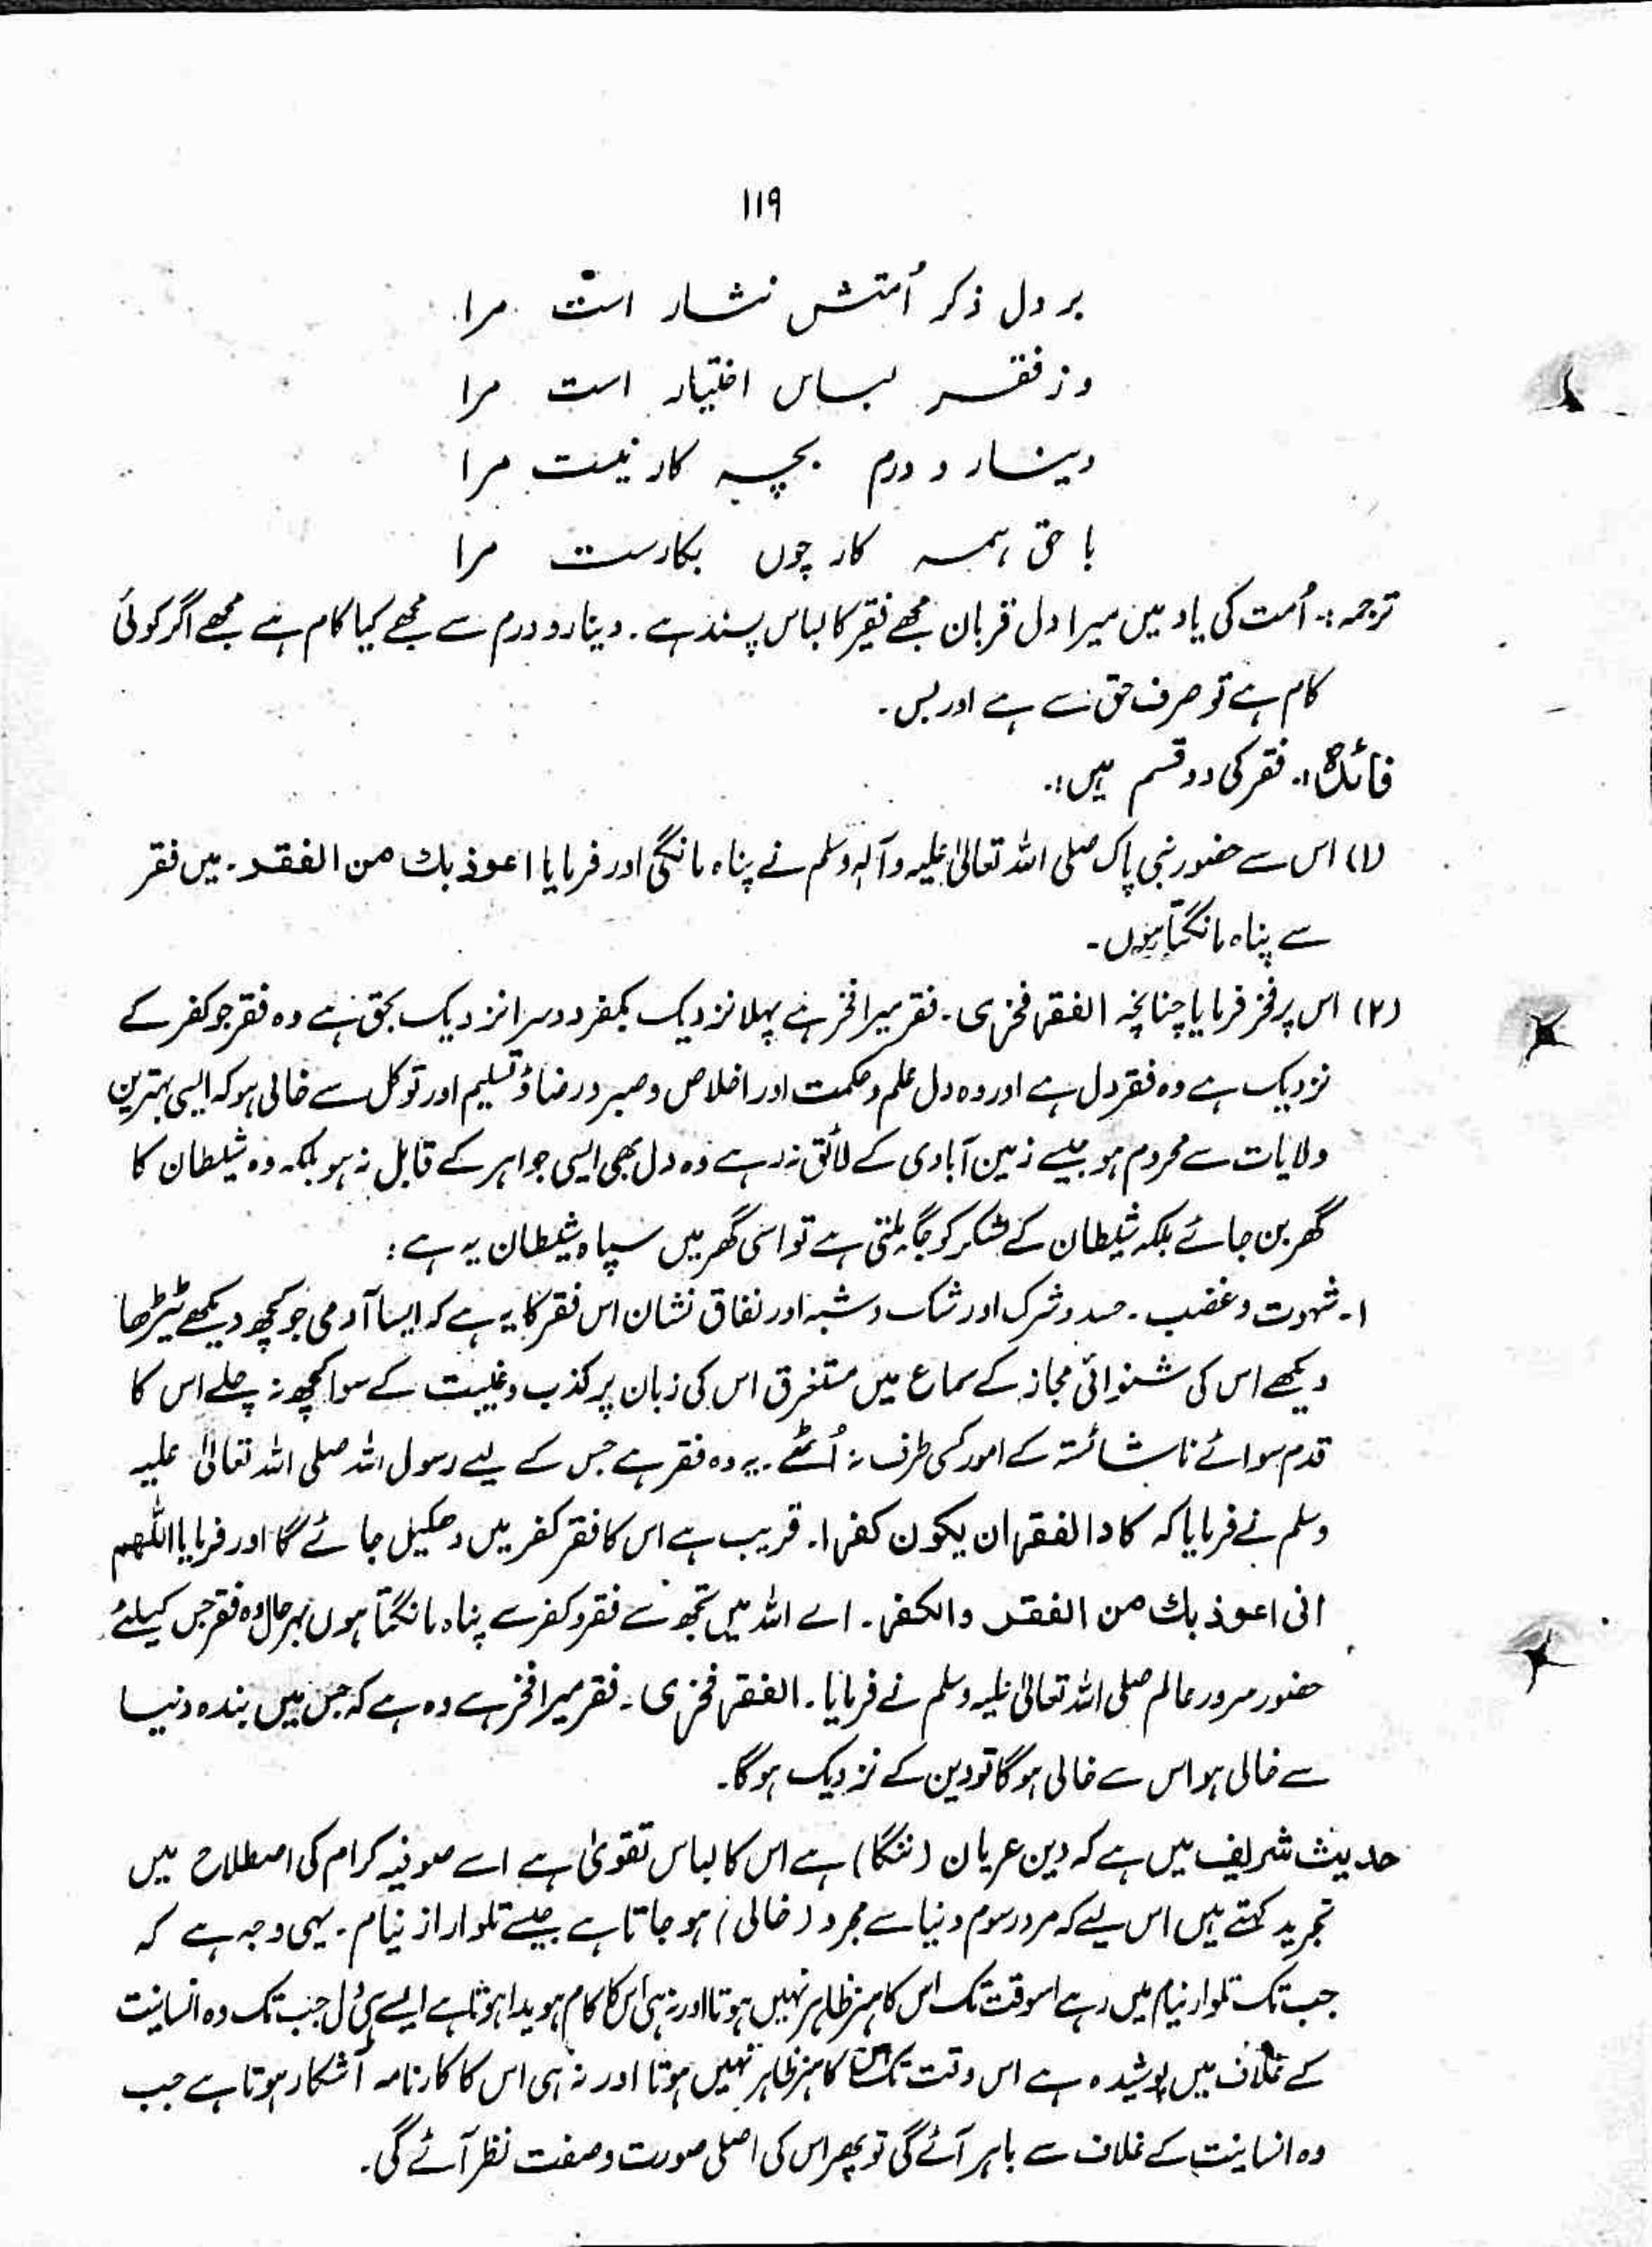 ۱۱۹
بر دل ذکر اُمتش نثار است مرا
وز فقر لباس اختیار است مرا
دینار و درم بچہ کار نیست مرا
با حق ہمہ کار چوں بکارست مرا
ترجمہ:۔ اُمت کی یاد میں میرا دل قربان مجھے فقیر کا لباس پسند ہے۔ دینار و درم سے مجھے کیا کام ہے مجھے اگر کوئی
کام ہے تو صرف حق سے ہے اور بس۔
فائدہ:۔ فقر کی دو قسم ہیں:۔
(۱) اس سے حضور نبی پاک صلی اللہ تعالیٰ علیہ وآلہ وسلم نے پناہ مانگی اور فرمایا اعوذ بك من الفقر۔ میں فقر
سے پناہ مانگتا ہوں۔
(۲) اس پر فخر فرمایا چنانچہ الفقر فخری۔ فقر میرا فخر ہے پہلا نزدیک بکفر دوسرا نزدیک بحق ہے وہ فقر جو کفر کے
نزدیک ہے وہ فقر دل ہے اور وہ دل علم و حکمت اور اخلاص و صبر و رضا و تسلیم اور توکل سے خالی ہو کہ ایسی بہترین
ولایات سے محروم ہو جیسے زمین آبادی کے لائق نہ رہے وہ دل بھی ایسی جواہر کے قابل نہ ہو بلکہ وہ شیطان کا
گھر بن جائے بلکہ شیطان کے لشکر کو جگہ ملتی ہے تو اسی گھر میں سپاہ شیطان یہ ہے:
۱۔ شہوت و غضب۔ حسد و شرک اور شک و شبہ اور نفاق نشان اس فقر کا یہ ہے کہ ایسا آدمی جو کچھ دیکھے ٹیڑھا
دیکھے اس کی شنوائی مجاز کے سماع میں مستغرق اس کی زبان پر کذب و غیبت کے سوا کچھ نہ چلے اس کا
قدم سوائے ناشائستہ کے امور کسی طرف نہ اُٹھے۔ یہ وہ فقر ہے جس کے لیے رسول اللہ صلی اللہ تعالیٰ علیہ
وسلم نے فرمایا کہ کاد الفقر ان یکون کفرا۔ قریب ہے اس کا فقر کفر میں دھکیل جائے گا اور فرمایا اللّٰھم
انی اعوذ بك من الفقر والکفر۔ اے اللہ میں تجھ سے فقر و کفر سے پناہ مانگتا ہوں بہرحال وہ فقر جس کیلئے
حضور سرور عالم صلی اللہ تعالیٰ علیہ وسلم نے فرمایا۔ الفقر فخری۔ فقر میرا فخر ہے وہ ہے کہ جس میں بندہ دنیا
سے خالی ہو اس سے خالی ہو گا تو دین کے نزدیک ہو گا۔
حدیث شریف میں ہے کہ دین عریان (ننگا) ہے اس کا لباس تقویٰ ہے اسے صوفیہ کرام کی اصطلاح میں
تجرید کہتے ہیں اس لیے کہ مرد رسوم دنیا سے مجرد (خالی) ہو جاتا ہے جیسے تلوار از نیام۔ یہی وجہ ہے کہ
جب تک تلوار نیام میں رہے اسوقت تک اس کا ہنر ظاہر نہیں ہوتا اور نہ ہی اس کا کام ہویدا ہوتا ہے ایسے ہی دل جب تک وہ انسانیت
کے غلاف میں پوشیدہ ہے اس وقت تک اس کا ہنر ظاہر نہیں ہوتا اور نہ ہی اس کا کارنامہ آشکار ہوتا ہے جب
وہ انسانیت کے غلاف سے باہر آئے گی تو پھر اس کی اصلی صورت و صفت نظر آئے گی۔